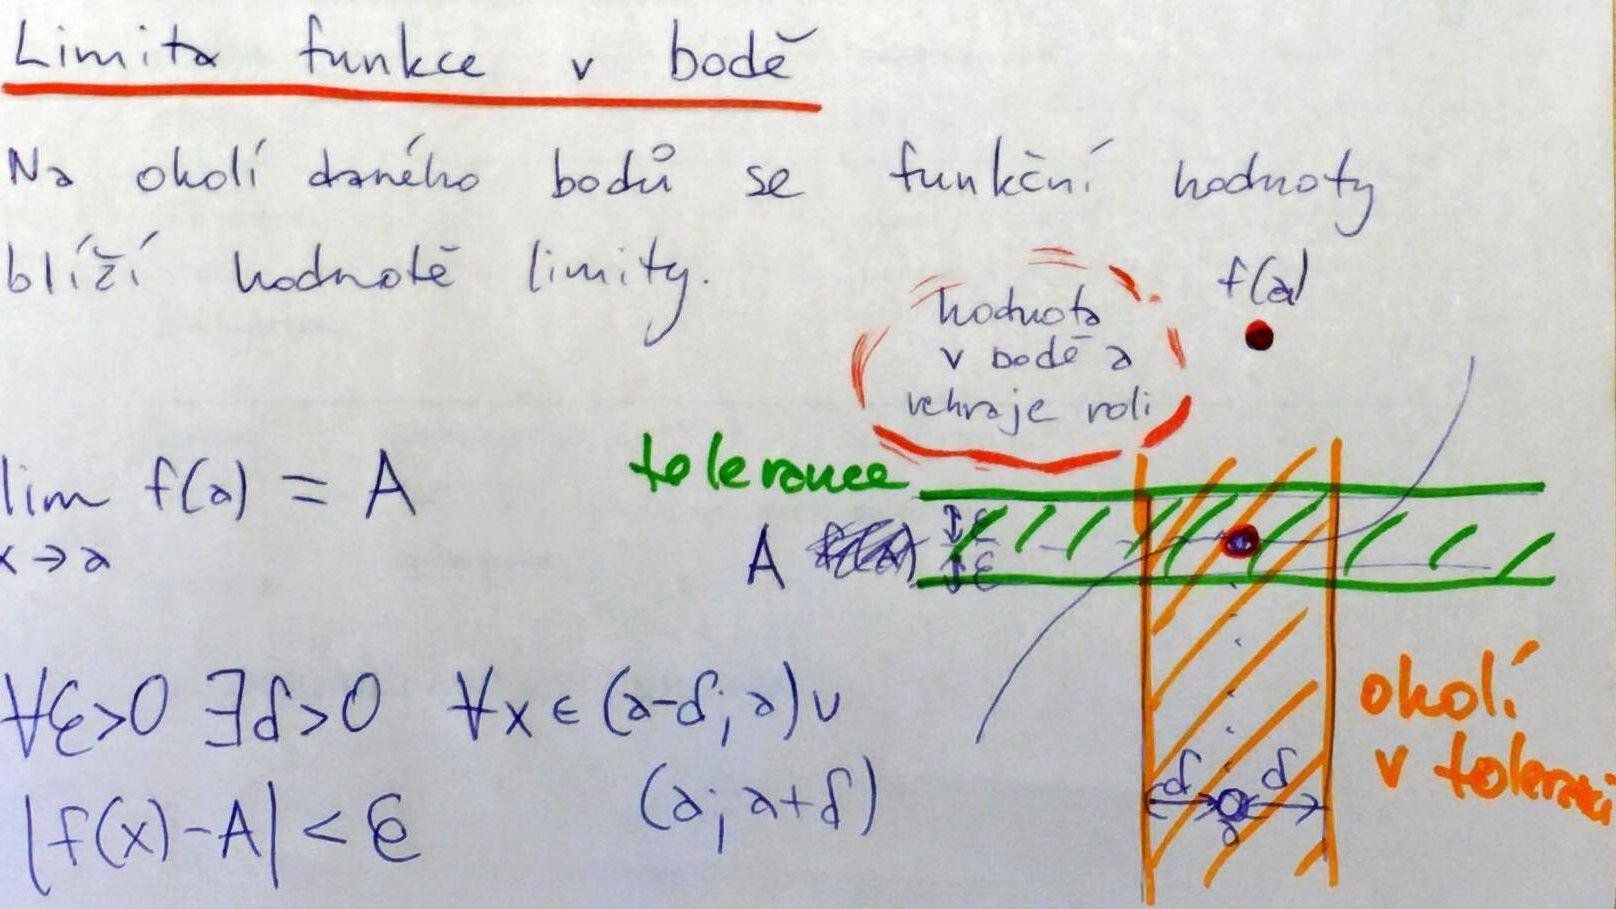 Limita funkce v bodě
Na okolí daného bodů se funkční hodnoty
blíží hodnotě limity.
f(a)
hodnota
v bodě a
nehraje roli
lim f(a) = A
x→a
tolerance
A
ε
ε
∀ε>0 ∃δ>0 ∀x∈(a-δ;a)∪
(a;a+δ)
|f(x)-A|<ε
okolí
v toleranci
δ δ
a